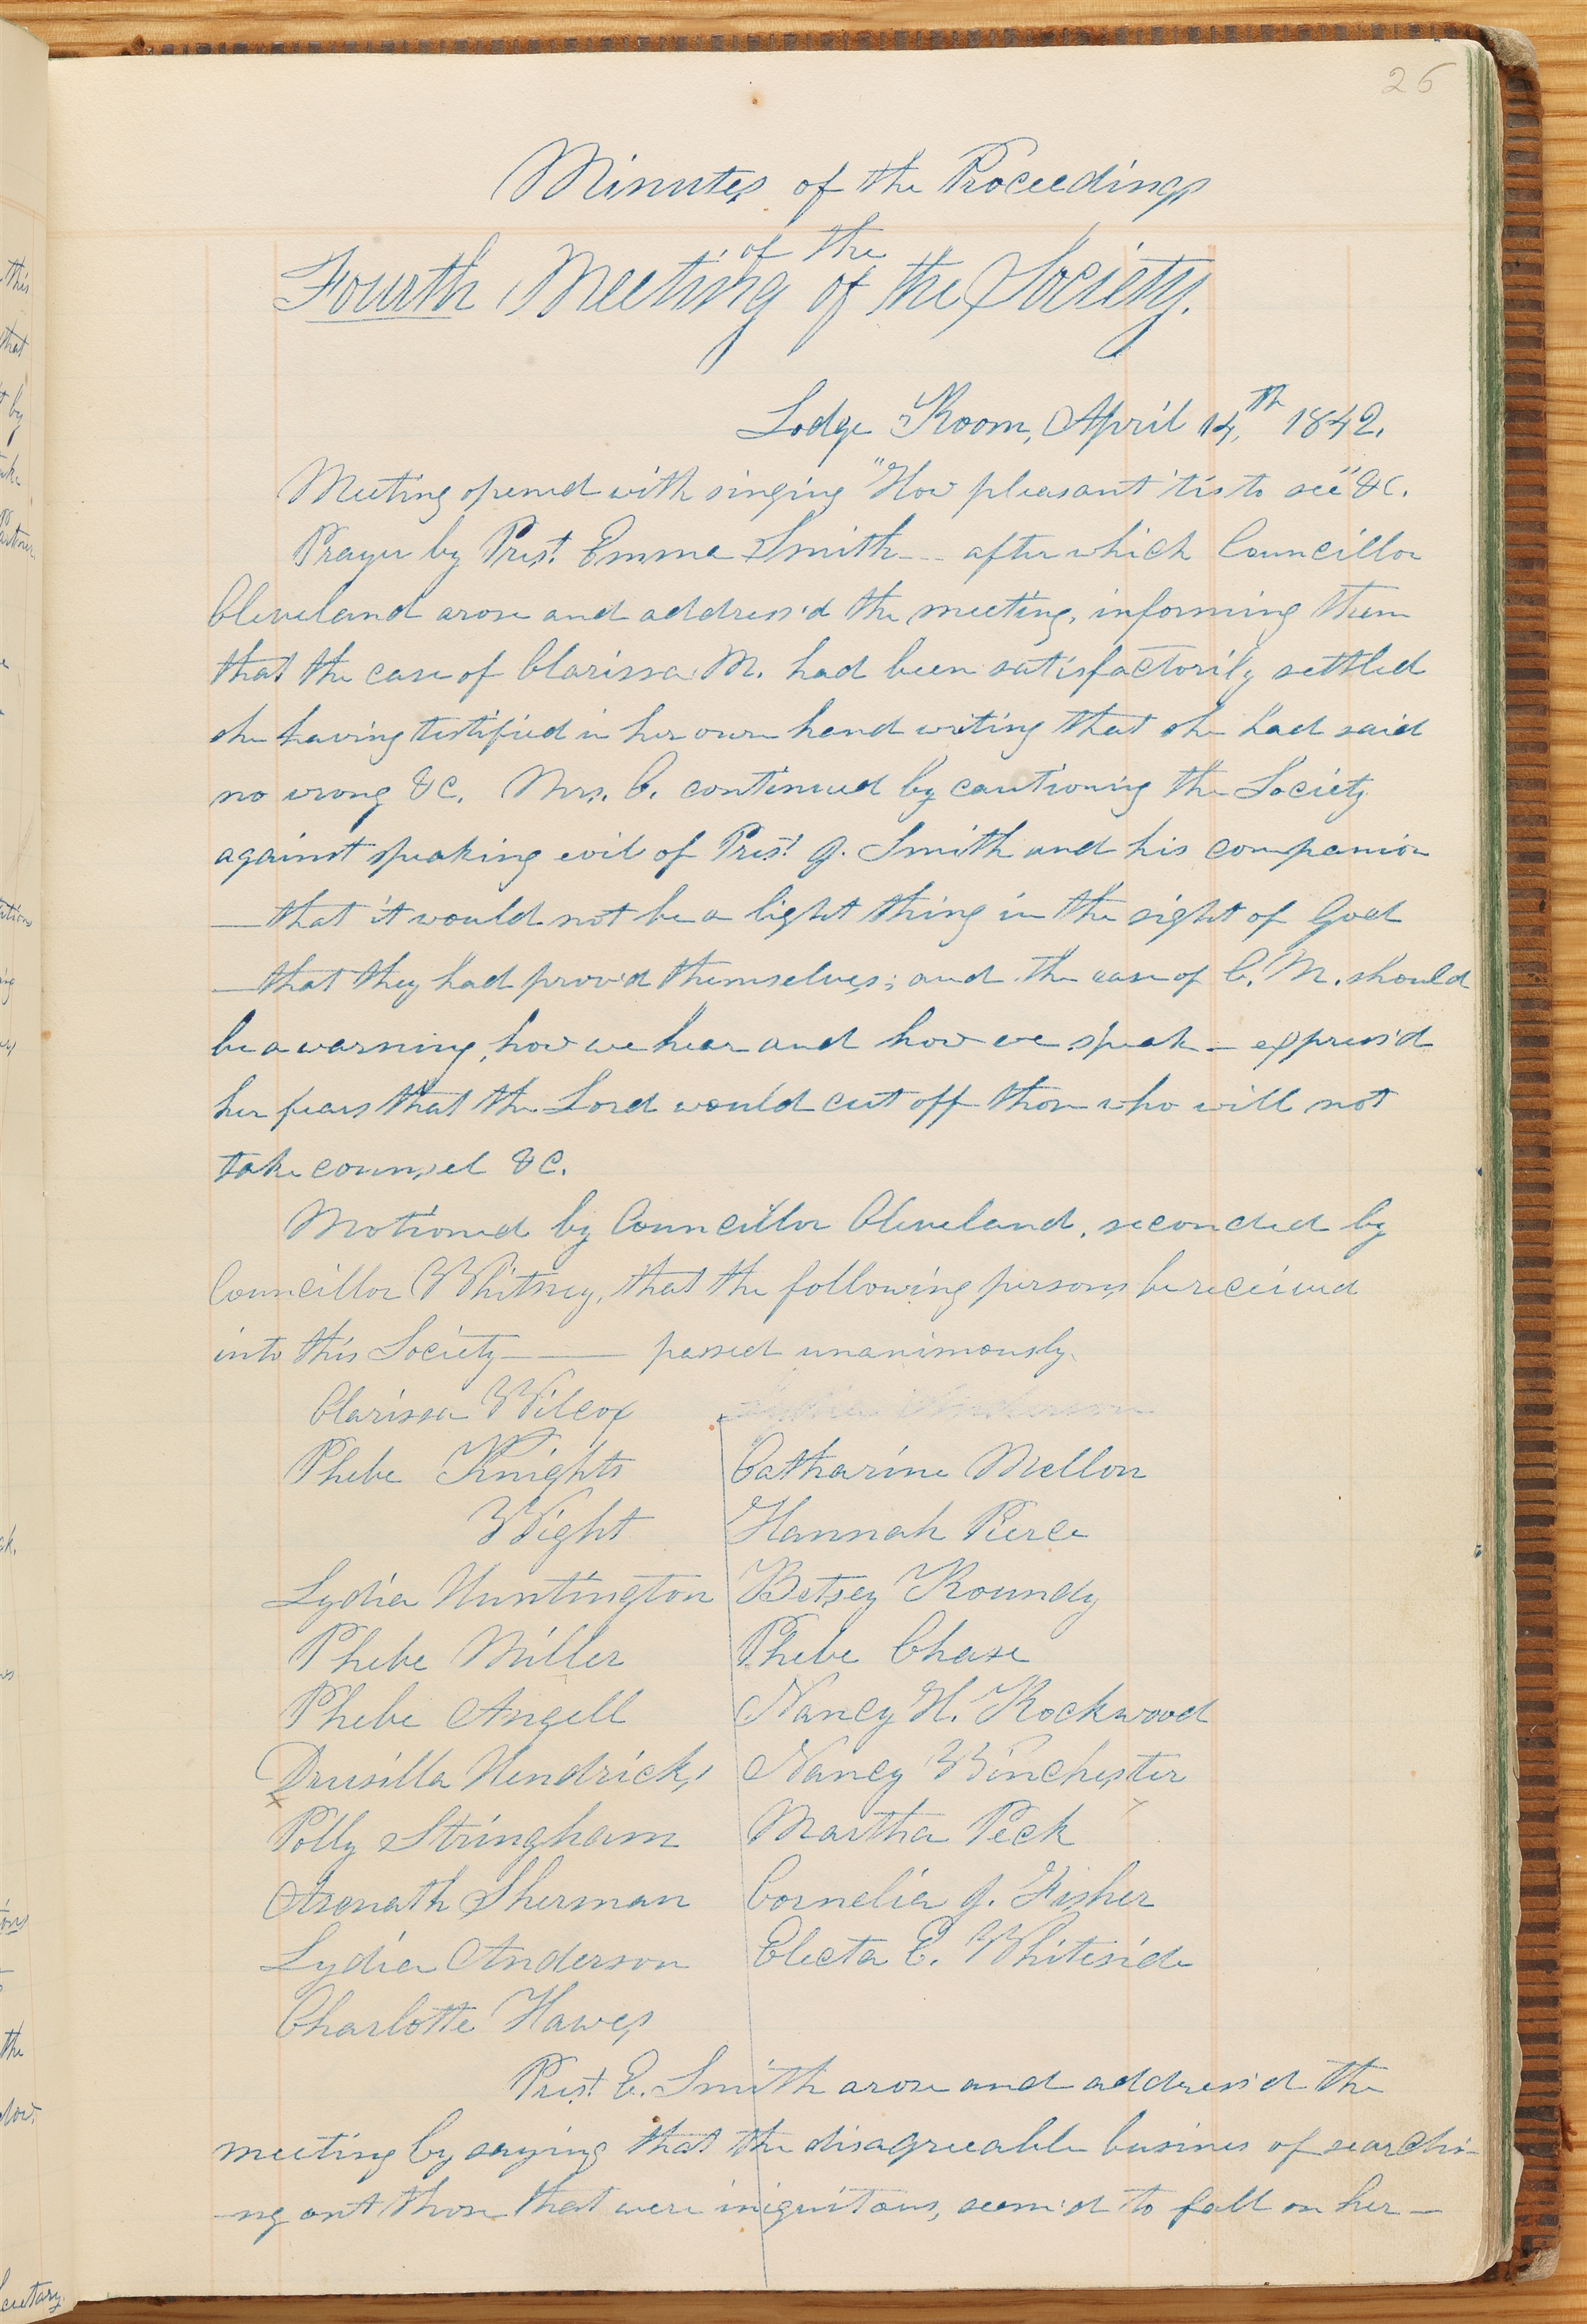 26
Minutes of the Proceedings
of the
Fourth Meeting of the Society.
Lodge Room, April 14,th 1842.
Meeting opened with singing "How pleasant 'tis to see" &c.
Prayer by Prest. Emma Smith — after which Councillor
Cleveland arose and address'd the meeting, informing them
that the case of Clarissa M. had been satisfactorily settled
she having testified in her own hand writing that she had said
no wrong &c. Mrs. C. continued by cautioning the Society
against speaking evil of Prest. J. Smith and his companion
—that it would not be a light thing in the sight of God
—that they had prov'd themselves; and the case of C. M. should
be a warning, how we hear and how we speak — express'd
her fears that the Lord would cut off those who will not
take counsel &c.
Motioned by Councillor Cleveland, seconded by
Councillor Whitney, that the following persons be received
into this Society —— passed unanimously.
Clarissa Wilcox Lydia Anderson
Phebe Knights Catharine Mellon
Wight Hannah Pierce
Lydia Huntington Betsey Roundy
Phebe Miller Phebe Chase
Phebe Angell Nancy H. Rockwood
Drusilla Hendricks Nancy Winchester
x
Polly Stringham Martha Peck
Asenath Sherman Cornelia J. Fisher
Lydia Anderson Electa C. Whiteside
Charlotte Hawes
Prest. E. Smith arose and address'd the
meeting by saying that the disagreeable busines of searchi-
-ng out those that were iniquitous, seem'd to fall on her —